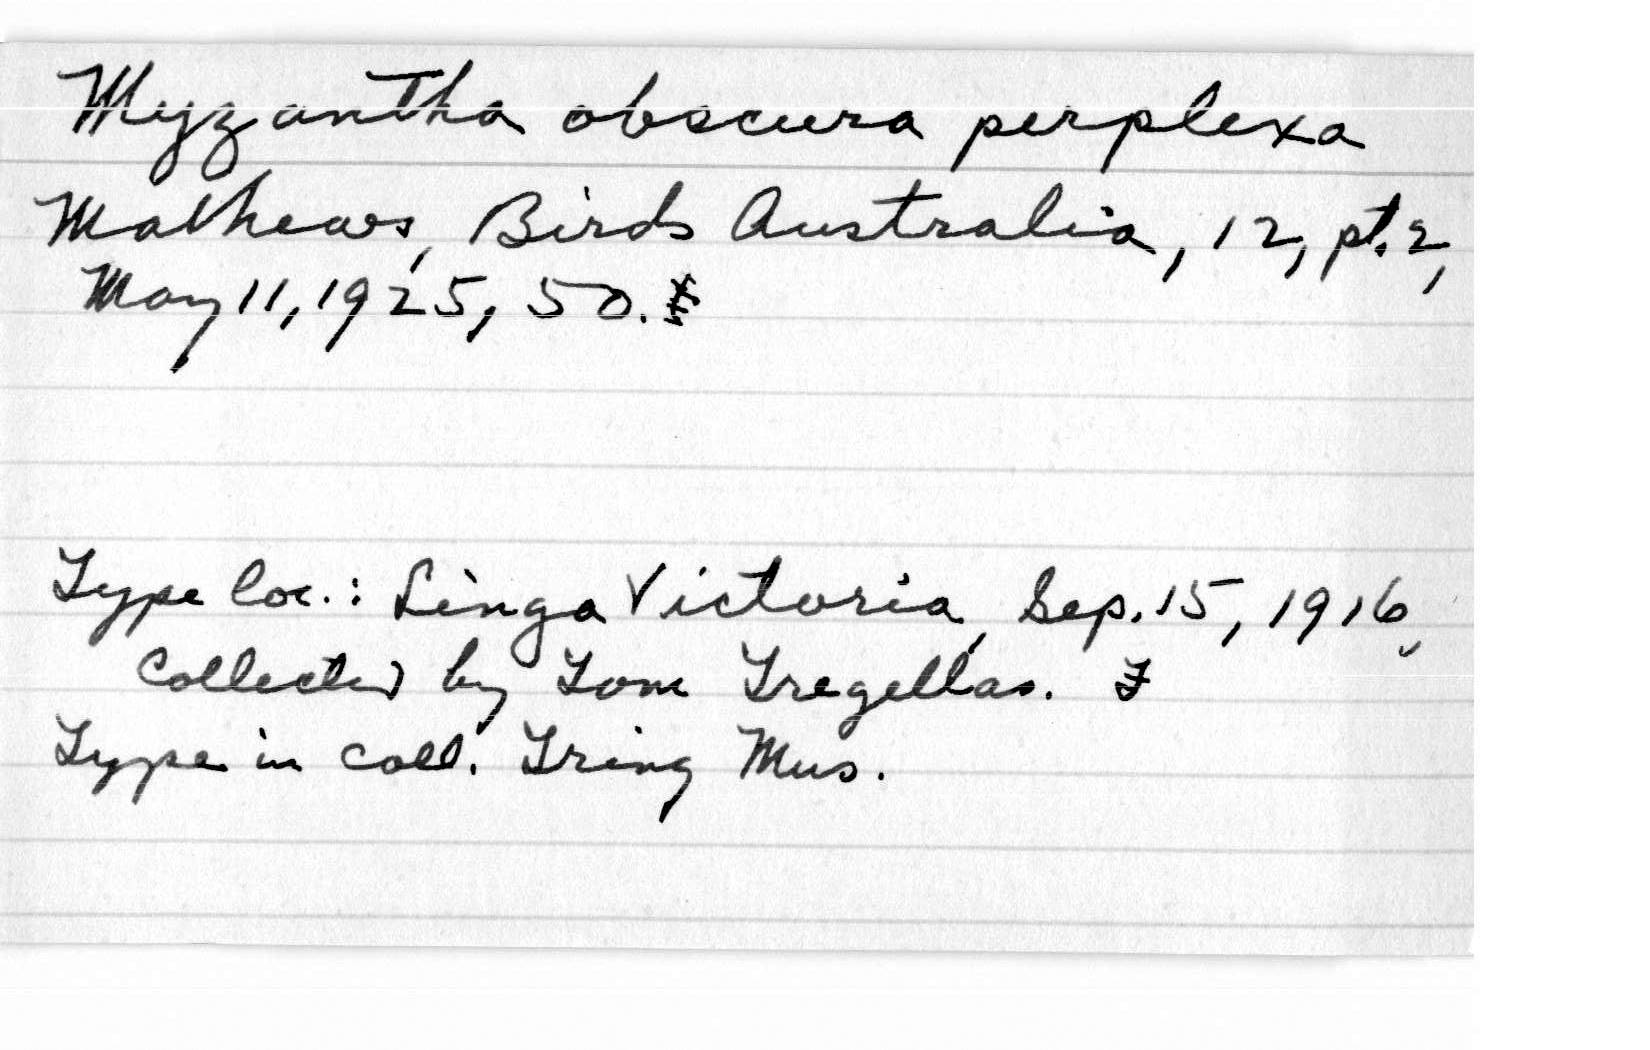 Myzantha obscura perplexa
Mathews, Birds Australia, 12, pt. 2,
May 11, 1925, 50.
Type loc.: Linga Victoria, Sep. 15, 1916,
collected by Tom Tregellas.
Type in coll. Tring Mus.